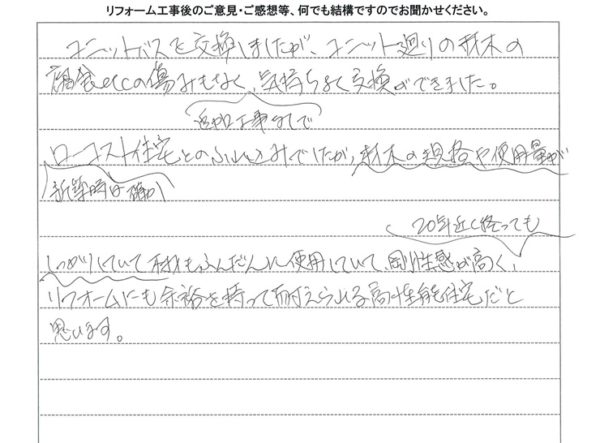 リフォーム工事後のご意見・ご感想等、何でも結構ですのでお聞かせください。
ユニットバスを交換しましたが、ユニット廻りの材木の
腐食etcの傷みもなく、気持ちよく交換ができました。
追加工事なしで
ローコスト住宅とのふれこみでしたが、材木の規格や使用量が
新築時は確か
20年近く経っても
しっかりしていて材もふんだんに使用していて、剛性感が高く、
リフォームにも余裕を持って耐えられる高性能住宅だと
思います。